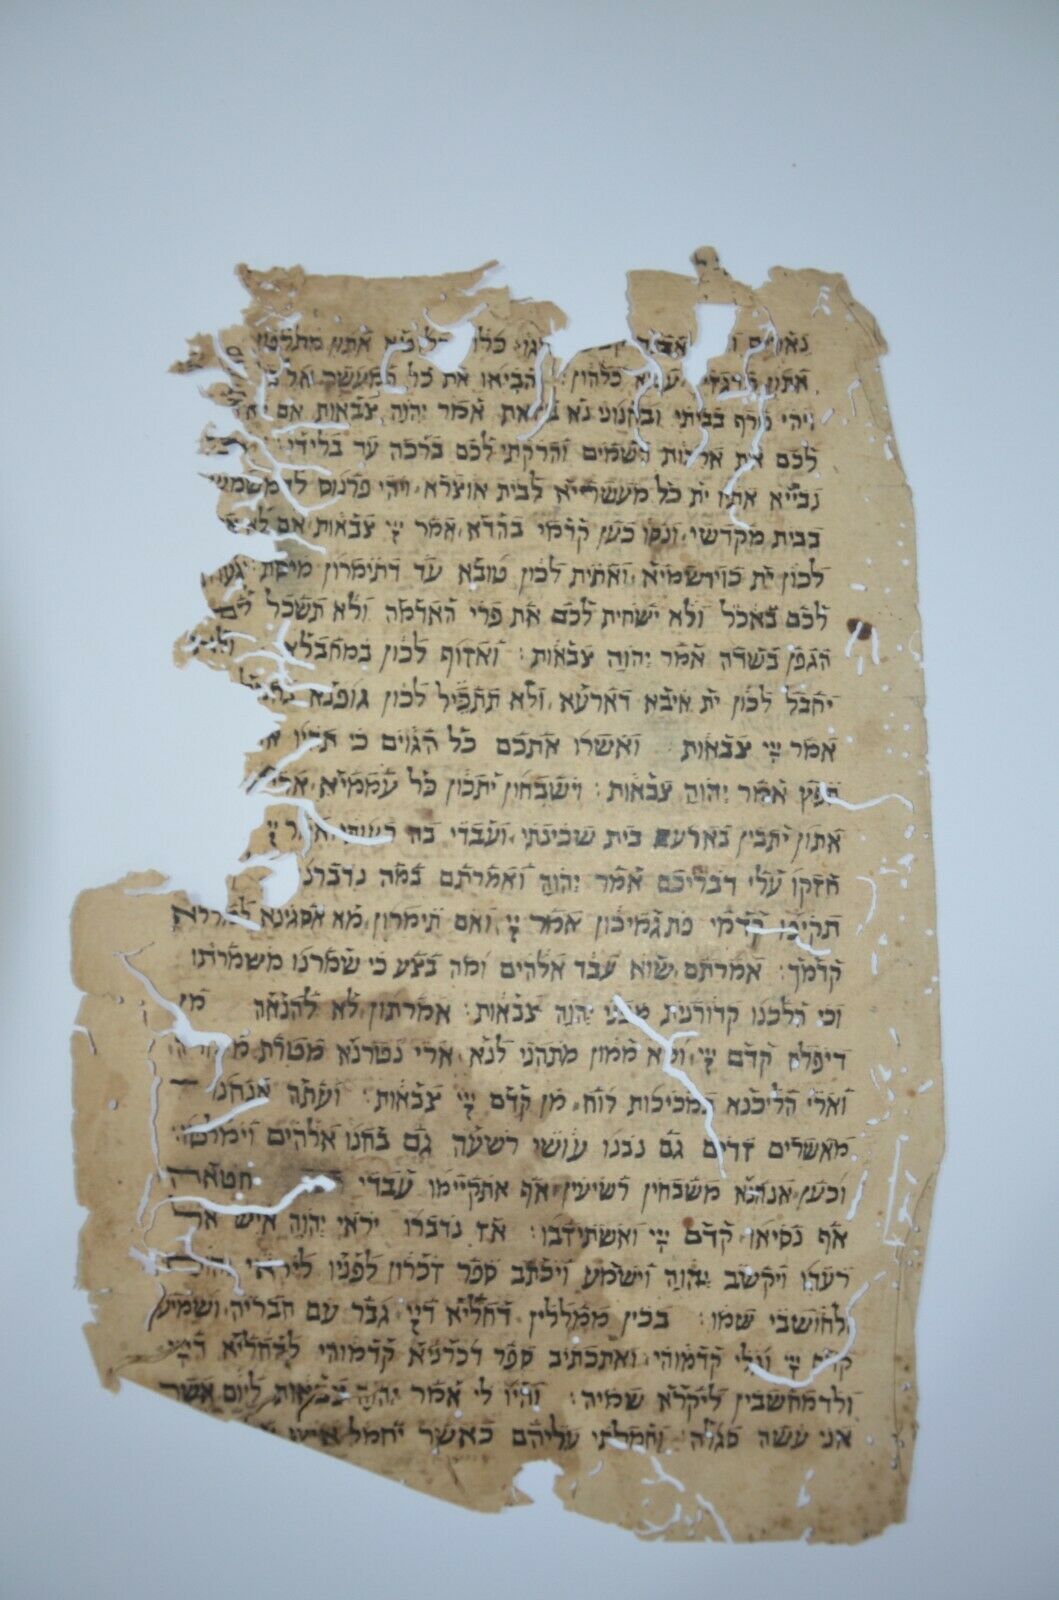 אתון מתלטטין
אתון כלהון הביאו את כל המעשר אל
ויהי טרף בביתי ובחנוני נא בזאת אמר יהוה צבאות אם
לכם את ארבות השמים והרקתי לכם ברכה עד בלי די
נבייא אתו ית כל מעשרייא לבית אוצרא ויהי פרנוס לדמשמשין
בבית מקדשי ונסו כען קדמי בהדא אמר יי צבאות אם לא
לכון ית כוי שמיא ואחית לכון טובא עד דתימרון מיסת
לכם באכל ולא ישחית לכם את פרי האדמה ולא תשכל לכם
הגפן בשדה אמר יהוה צבאות ואזוף לכון במחבלא
יחבל לכון ית איבא דארעא ולא תתכיל לכון גופנא
אמר יי צבאות ואשרו אתכם כל הגוים כי תהיו
חפץ אמר יהוה צבאות וישבחון יתכון כל עממיא ארי
אתון יתבין בארעא בית שכינתי ועבדי בה רעותי אמר יי
חזקו עלי דבריכם אמר יהוה ואמרתם מה נדברנו
תקיפו קדמי פתגמיכון אמר יי ואם תימרון מא אסגינא למללא
קדמך אמרתם שוא עבד אלהים ומה בצע כי שמרנו משמרתו
וכי הלכנו קדורנית מפני יהוה צבאות אמרתון לא להנאה מן
דיפלח קדם יי ומא ממון מתהני לנא ארי נטרנא מטרת
וארי הליכנא במכיכות רוח מן קדם יי צבאות ועתה אנחנו
מאשרים זדים גם נבנו עושי רשעה גם בחנו אלהים וימלטו
וכען אנחנא משבחין רשיעין אף אתקיימו עבדי חטאה
אף נסיאו קדם יי ואשתיזבו אז נדברו יראי יהוה איש את
רעהו ויקשב יהוה וישמע ויכתב ספר זכרון לפניו ליראי יהוה
ולחושבי שמו בכין ממללין דחליא דיי גבר עם חבריה ושמיע
קדם יי וגלי קדמוהי ואתכתיב ספר דכרניא קדמוהי לדחליא דיי
ולדמחשבין ליקרא שמיה והיו לי אמר יהוה צבאות ליום אשר
אני עשה סגלה וחמלתי עליהם כאשר יחמל איש